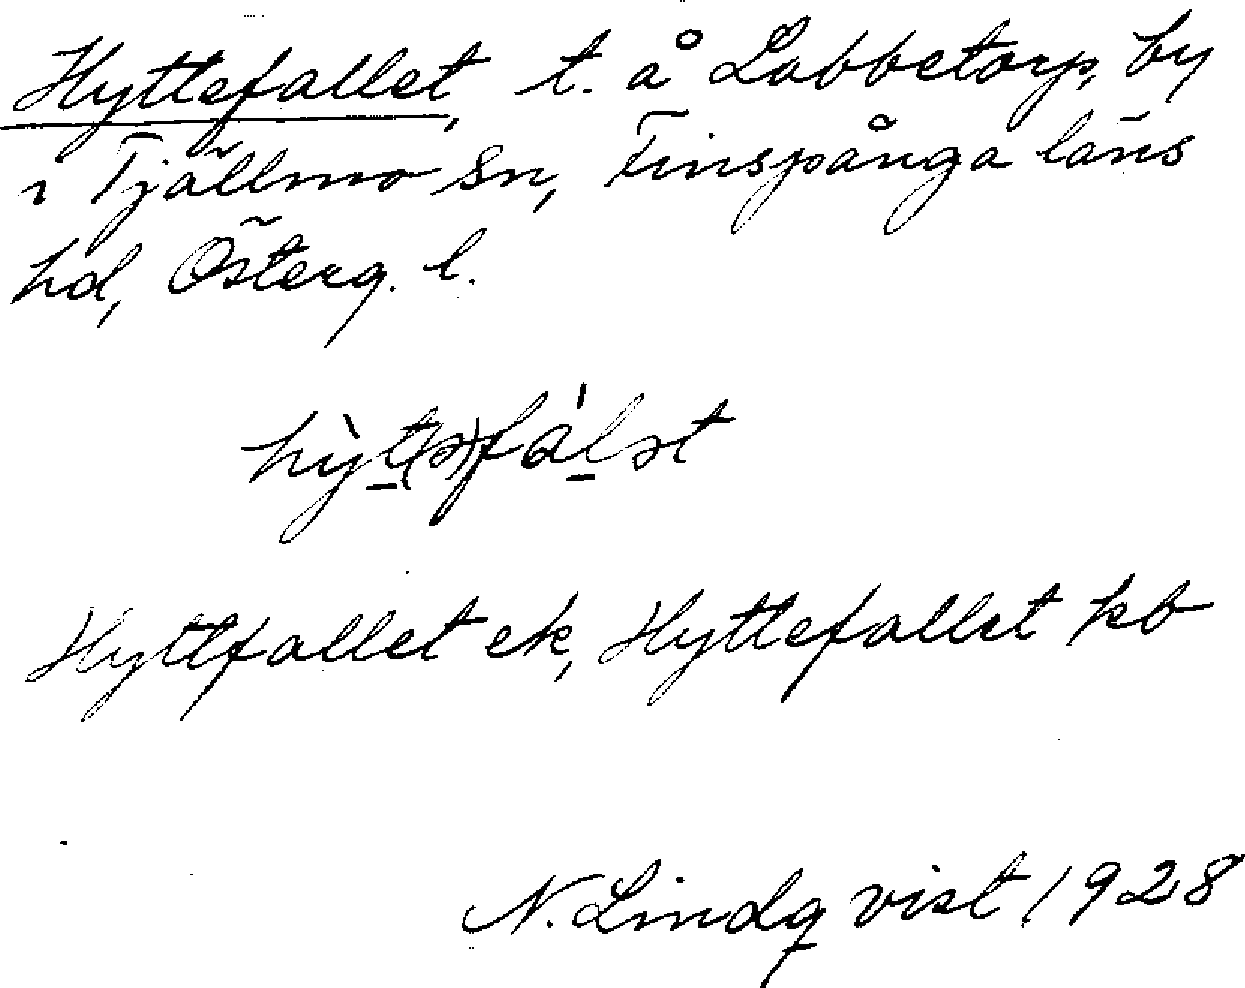 Hyttefallet, t. å Labbetorp, by
i Tjällmo Sn, Finspånga läns
hd, Österg. l.
hỳt(ə)fálət
Hyttfallet ek, Hyttefallet kb
N. Lindqvist 1928